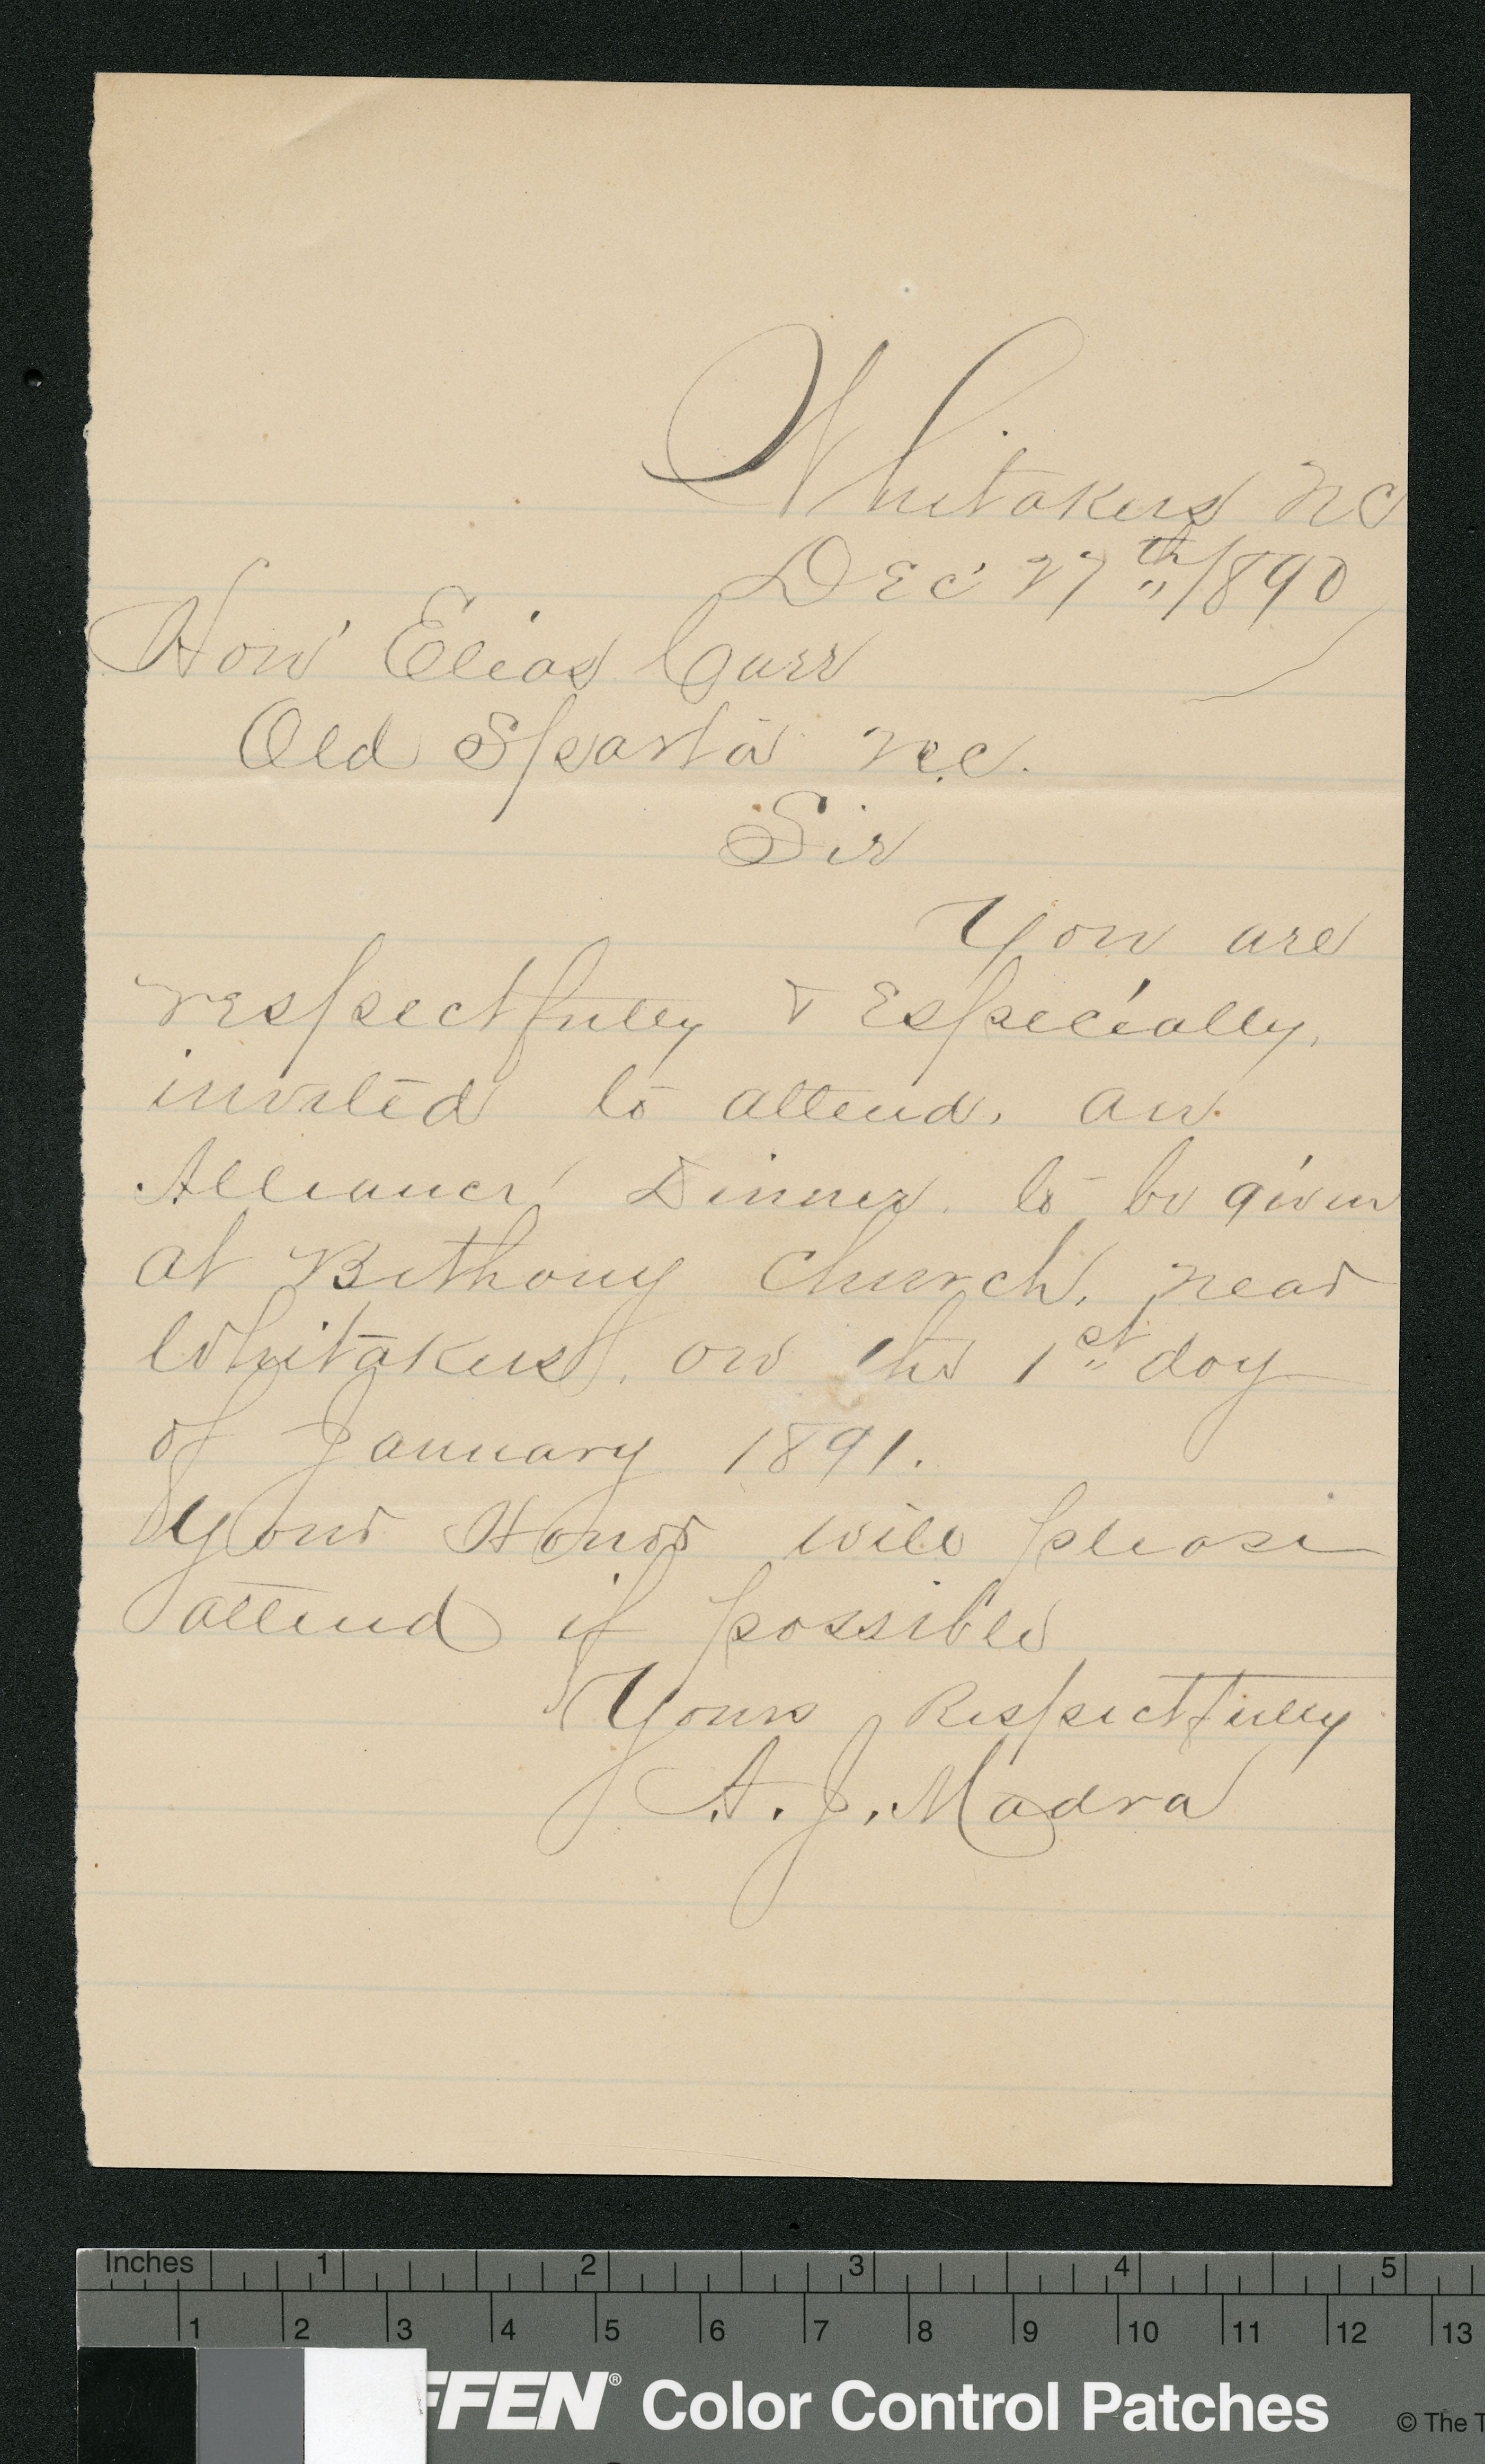 Whitakers NC
Dec 27th 1890
Hon Elias Carr
Old Sparta N.C.
Sir
You are
respectfully & Especially,
invited to attend, an
Alliance Dinner, to be given
at Bethany Church, near
Whitakers, on the 1st day
of January 1891.
Your Honor will please
attend if possible
Yours Respectfully
A. J. Madra
Inches 1 2 3 4 5
1 2 3 4 5 6 7 8 9 10 11 12 13
FFEN® Color Control Patches © The T